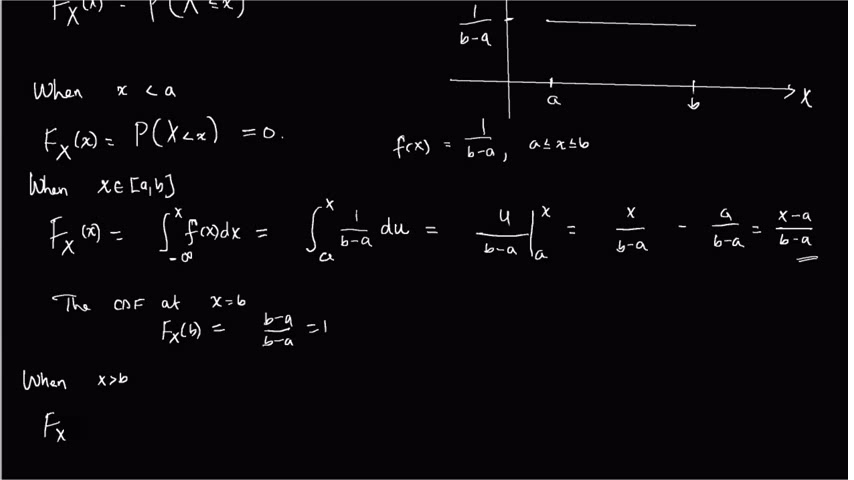 F_X(x) = P(X ≤ x)
1/(b-a)
a b X
When x < a
F_X(x) = P(X<x) = 0.
f(x) = 1/(b-a), a ≤ x ≤ b
When x∈[a,b]
F_X(x) = ∫_{-∞}^{x} f(x)dx = ∫_{a}^{x} 1/(b-a) du = u/(b-a) |_{a}^{x} = x/(b-a) - a/(b-a) = (x-a)/(b-a)
The CDF at x=b
F_X(b) = (b-a)/(b-a) = 1
When x>b
F_X